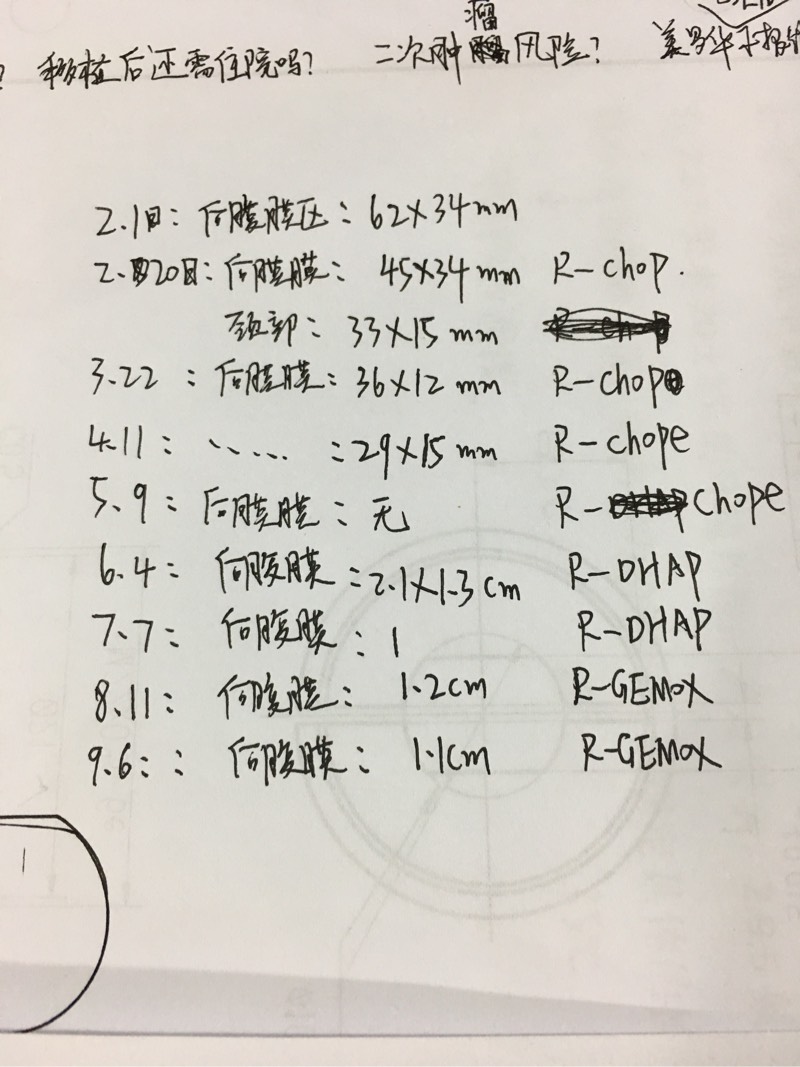 ? 移植后还需住院吗? 二次肿瘤风险? 美罗华
2.1日: 后腹膜区: 62×34mm
2.20日: 后腹膜: 45×34mm R-chop.
颈部: 33×15mm
3.22: 后腹膜: 36×12mm R-chop
4.11: ..... : 29×15mm R-chope
5.9: 后腹膜: 无 R-Chope
6.4: 后腹膜: 2.1×1.3cm R-DHAP
7.7: 后腹膜: 1 R-DHAP
8.11: 后腹膜: 1.2cm R-GEMOX
9.6: : 后腹膜: 1.1cm R-GEMOX